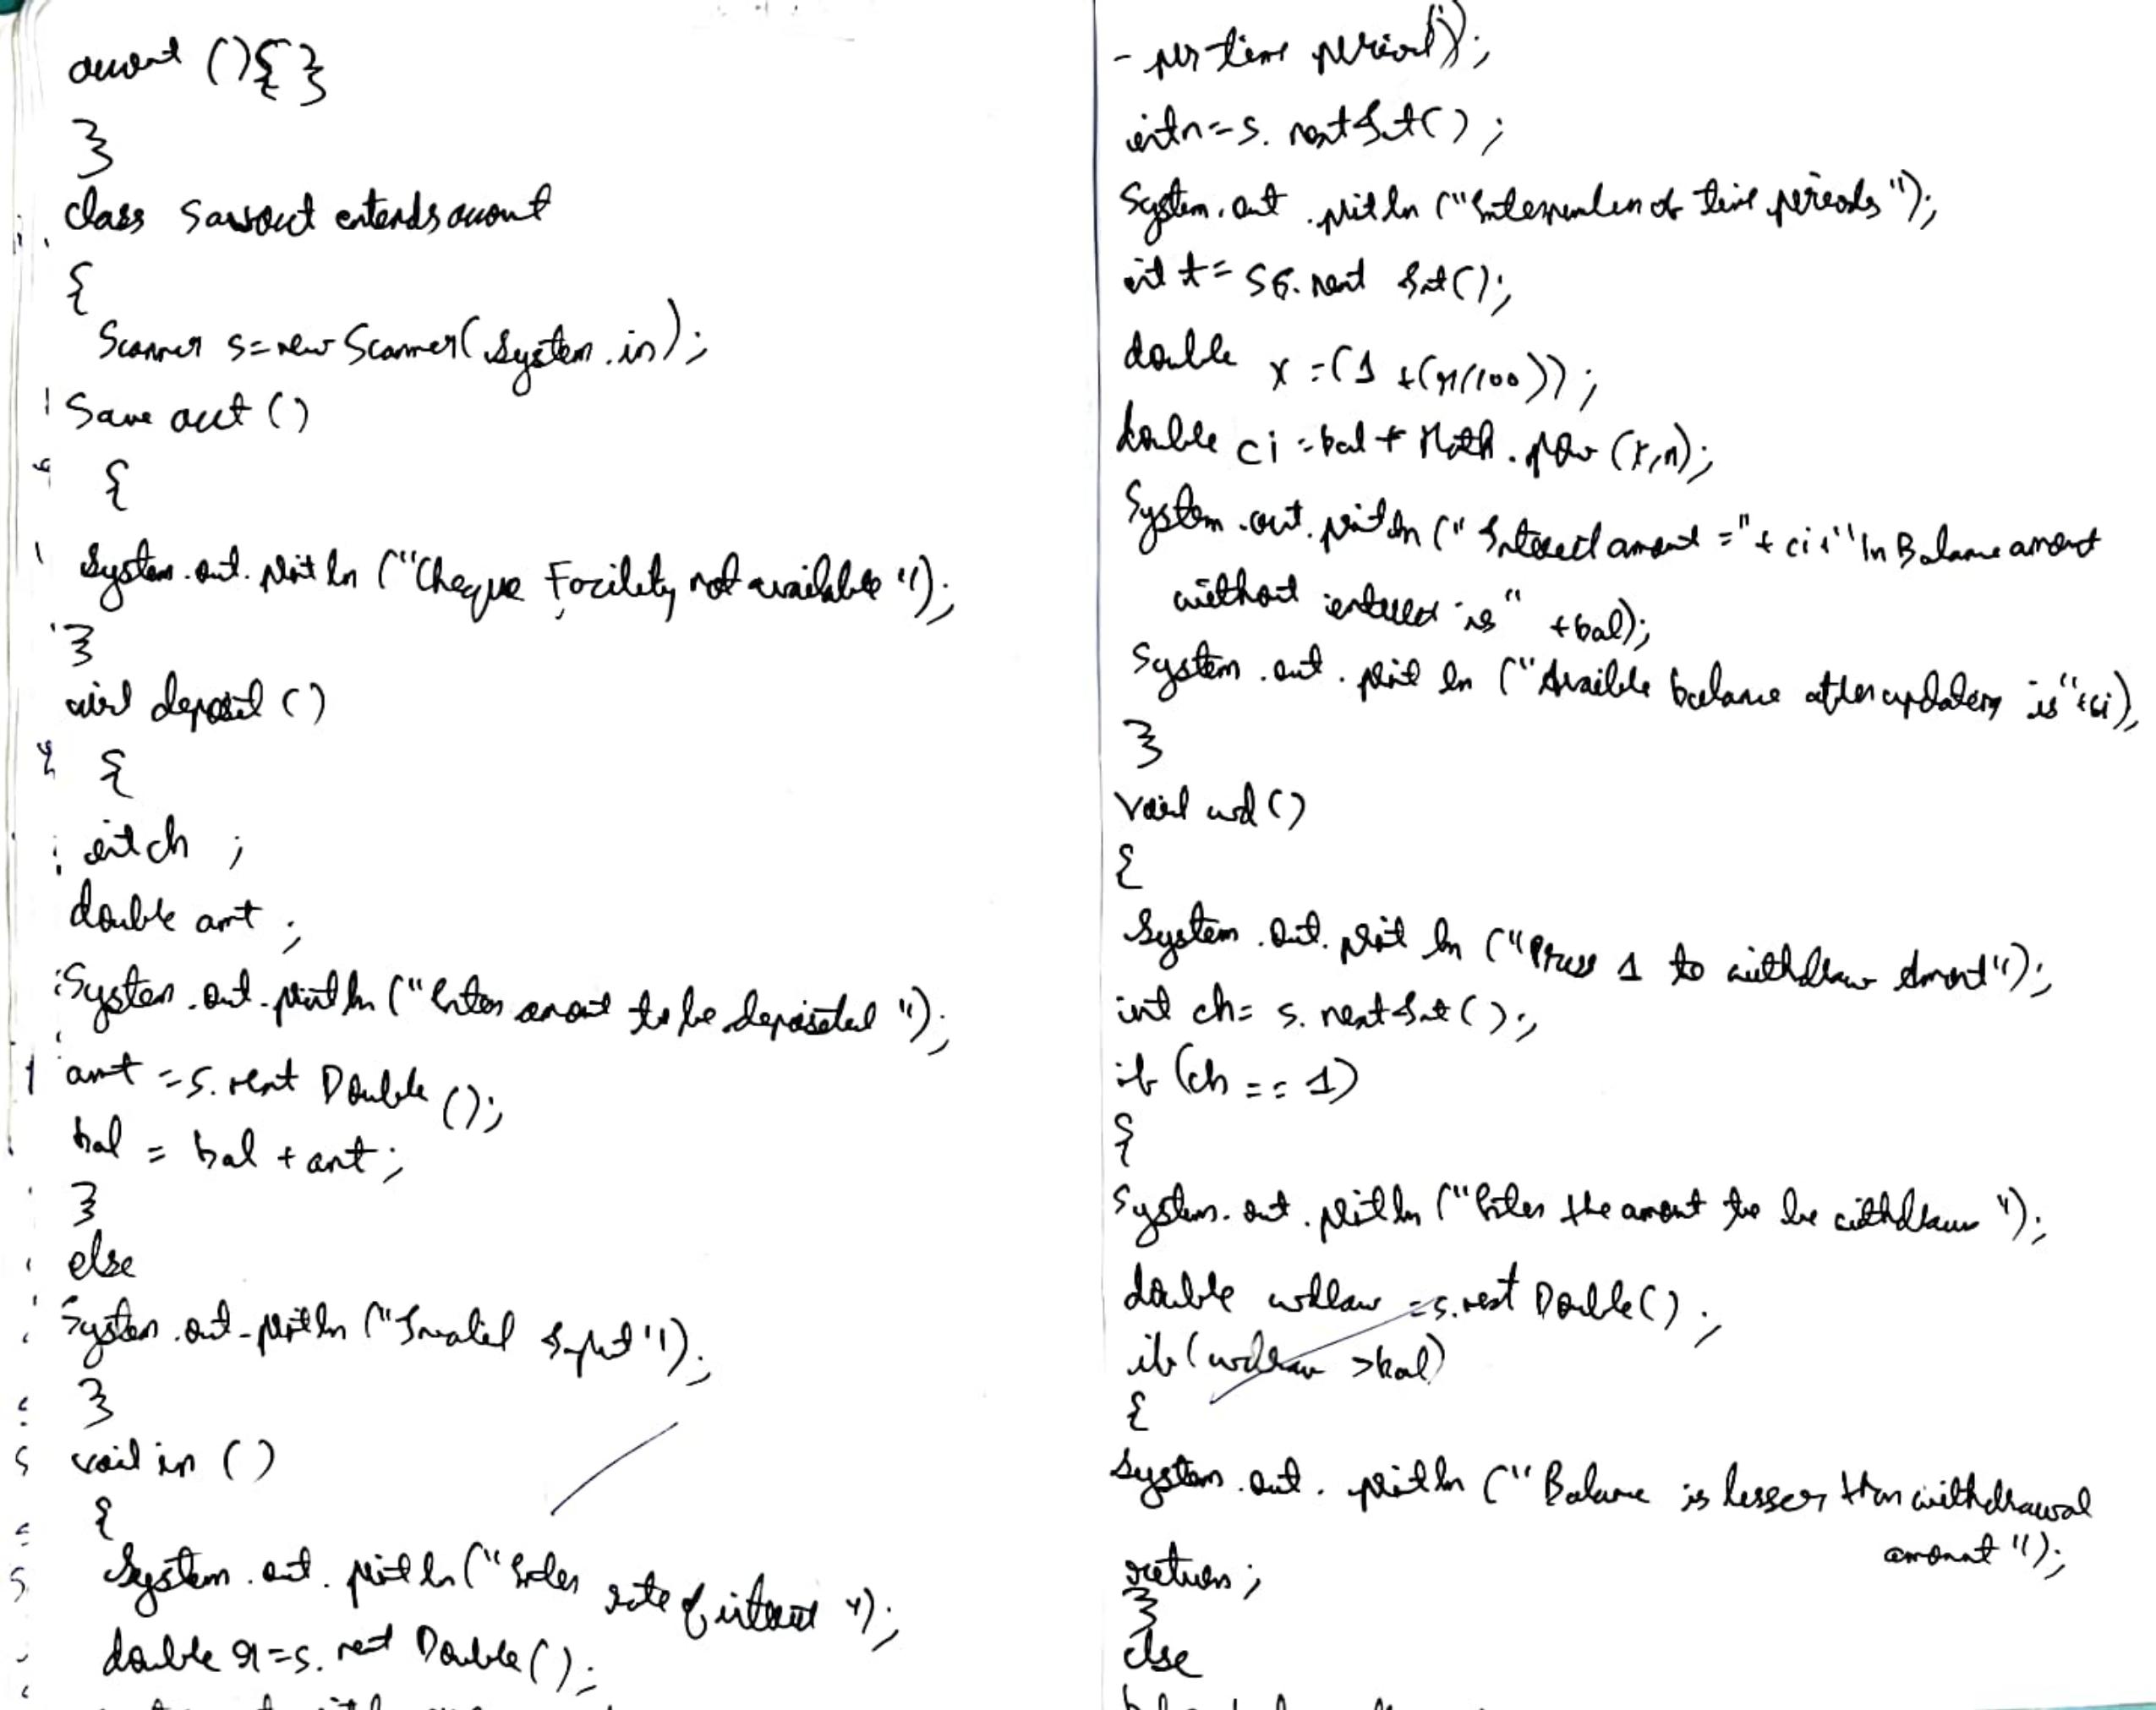 account () { }
}
class Savaccut extends account
{
Scanner s=new Scanner(System.in);
Save acct ()
{
System.out.println ("Cheque Facility not available");
}
void deposit ()
{
int ch ;
double amt ;
System.out.println ("Enter amount to be deposited ");
amt =s.next Double ();
bal = bal + amt ;
}
else
System.out.println ("Invalid Input");
}
void in ()
{
System.out.println ("Enter rate of interest ");
double r=s.next Double();
- per time period");
int n=s. nextInt() ;
System.out.println ("Enter number of time periods");
int t= s6.next Int();
double x =(1 +(r/100)) ;
double ci =bal * Math.pow (x,n);
System.out.println (" Interest amount ="+ ci+"\n Balance amount
without interest is" +bal);
System.out.println ("Availble balance after updating is"+ci),
}
Void wd ()
{
System.out.println ("Press 1 to withdraw Amount");
int ch= s. nextInt ();
if (ch == 1)
{
System.out.println ("Enter the amount to be withdrawn ");
double wdraw =s.next Double() ;
if (wdraw >bal)
{
System.out.println ("Balance is lesser than withdrawal
amount ");
return ;
}
else